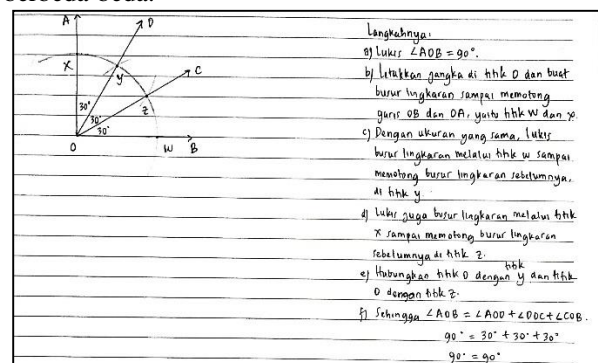 A
D
X
y
C
z
30°
30°
30°
O
W
B
Langkahnya:
a) Lukis ∠AOB = 90°.
b) Letakkan jangka di titik O dan buat
busur lingkaran sampai memotong
garis OB dan OA, yaitu titik W dan X.
c) Dengan ukuran yang sama, lukis
busur lingkaran melalui titik W sampai
memotong busur lingkaran sebelumnya,
di titik y.
d) Lukis juga busur lingkaran melalui titik
X sampai memotong busur lingkaran
sebelumnya di titik z.
e) Hubungkan titik O dengan titik y dan titik
O dengan titik z.
f) Sehingga ∠AOB = ∠AOD + ∠DOC + ∠COB.
90° = 30° + 30° + 30°
90° = 90°